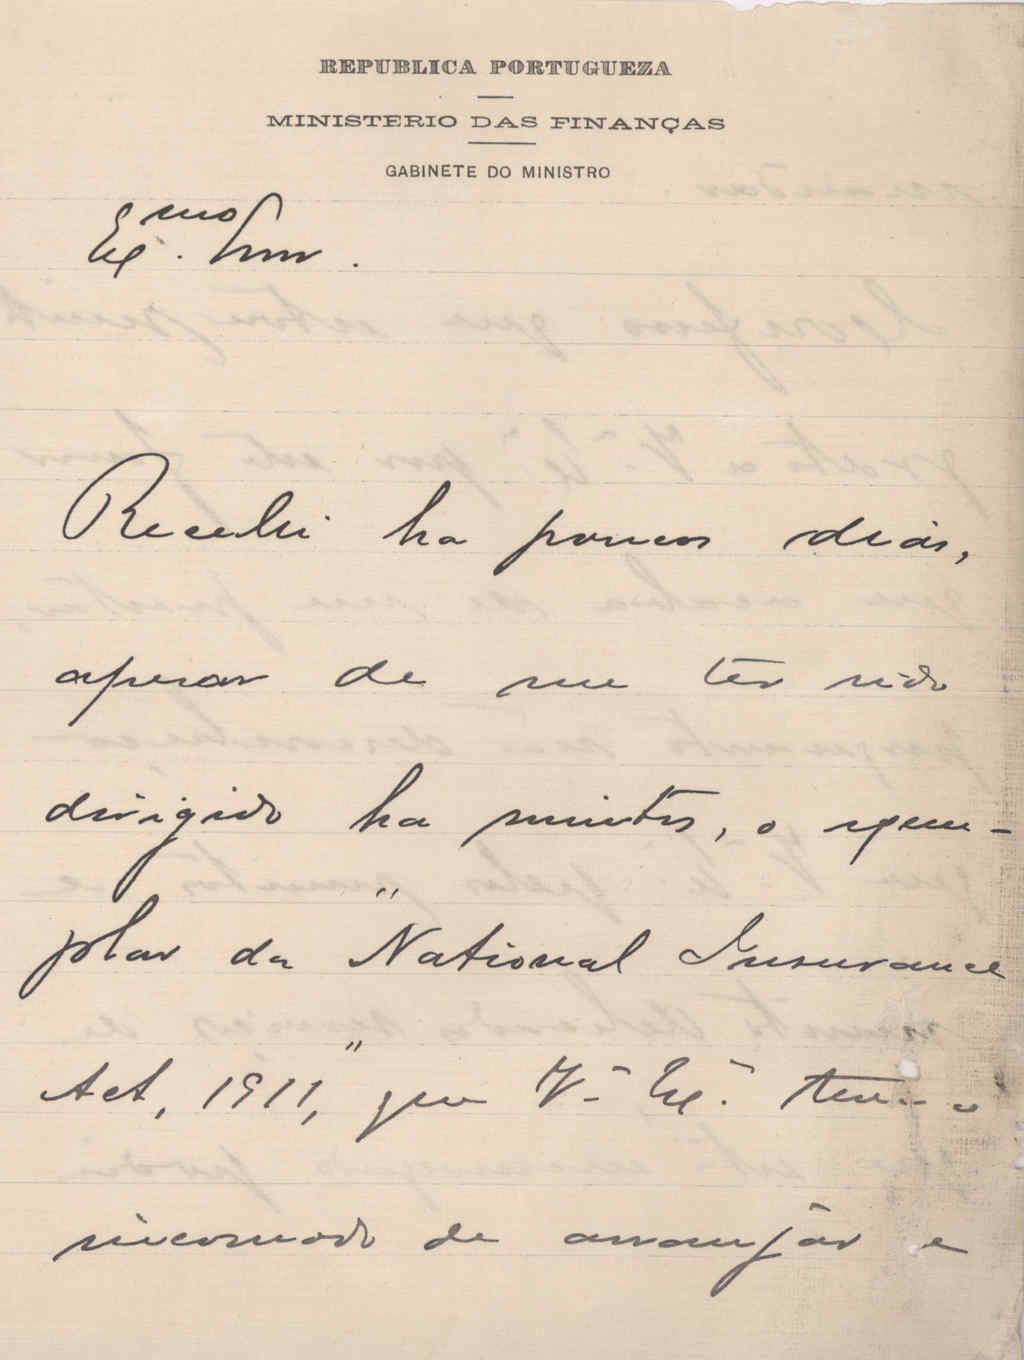 REPUBLICA PORTUGUEZA
MINISTERIO DAS FINANÇAS
GABINETE DO MINISTRO
Ex.mo Snr.
Recebi ha poucos dias,
apesar de me ter sido
dirigido ha muitos, o exem-
plar da "National Insurance
Act, 1911," que V. Ex. teve o
incomodo de arranjar e